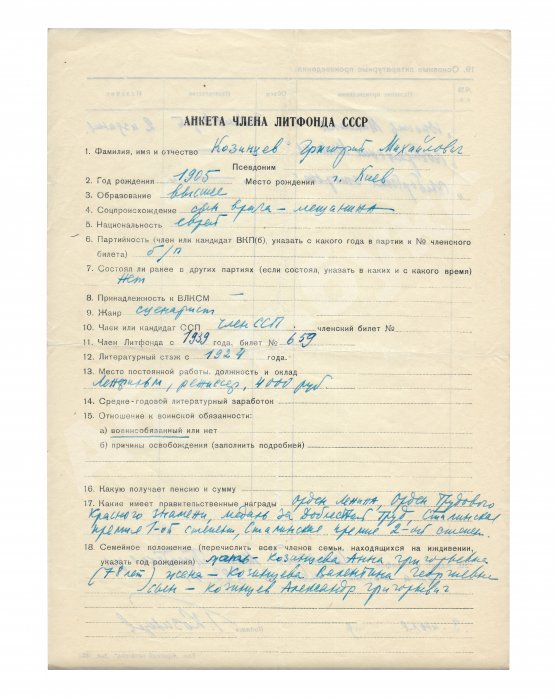 АНКЕТА ЧЛЕНА ЛИТФОНДА СССР
1. Фамилия, имя и отчество Козинцев Григорий Михайлович
Псевдоним
2. Год рождения 1905 Место рождения г. Киев
3. Образование высшее
4. Соцпроисхождение сын врача – мещанина
5. Национальность еврей
6. Партийность (член или кандидат ВКП(б), указать с какого года в партии и № членского
билета) б/п
7. Состоял ли ранее в других партиях (если состоял, указать в каких и с какого времени)
Нет
8. Принадлежность к ВЛКСМ —
9. Жанр сценарист
10. Член или кандидат ССП член ССП членский билет №
11. Член Литфонда с 1939 года, билет № 659
12. Литературный стаж с 1924 года.
13. Место постоянной работы, должность и оклад
Ленфильм, режиссер, 4000 руб.
14. Средне-годовой литературный заработок
15. Отношение к воинской обязанности:
а) военнообязанный или нет
б) причины освобождения (заполнить подробней)
16. Какую получает пенсию и сумму
17. Какие имеет правительственные награды Орден Ленина, Орден Трудового
Красного Знамени, медаль за Доблестный Труд, Сталинская
премия 1-ой степени, Сталинская премия 2-ой степен.
18. Семейное положение (перечислить всех членов семьи, находящихся на иждивении,
указать год рождения) мать – Козинцева Анна Григорьевна
(78 лет) жена – Козинцева Валентина Георгиевна
сын – Козинцев Александр Григорьевич